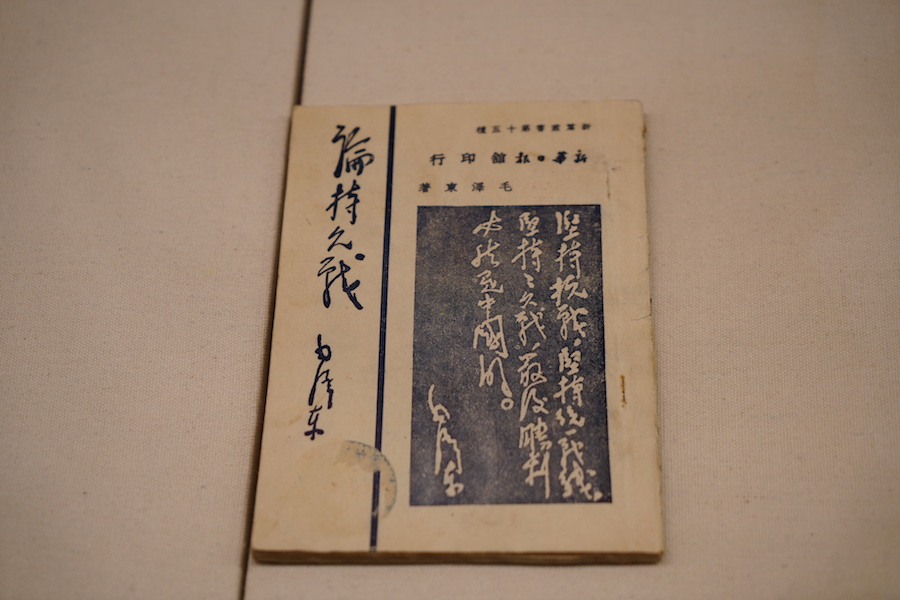 新羣叢書第十五種
新華日報館印行
毛澤東著
堅持抗戰、堅持統一戰綫、
堅持々久戰、最後勝利
必然是中國的。
毛澤東
論持久戰
毛澤東